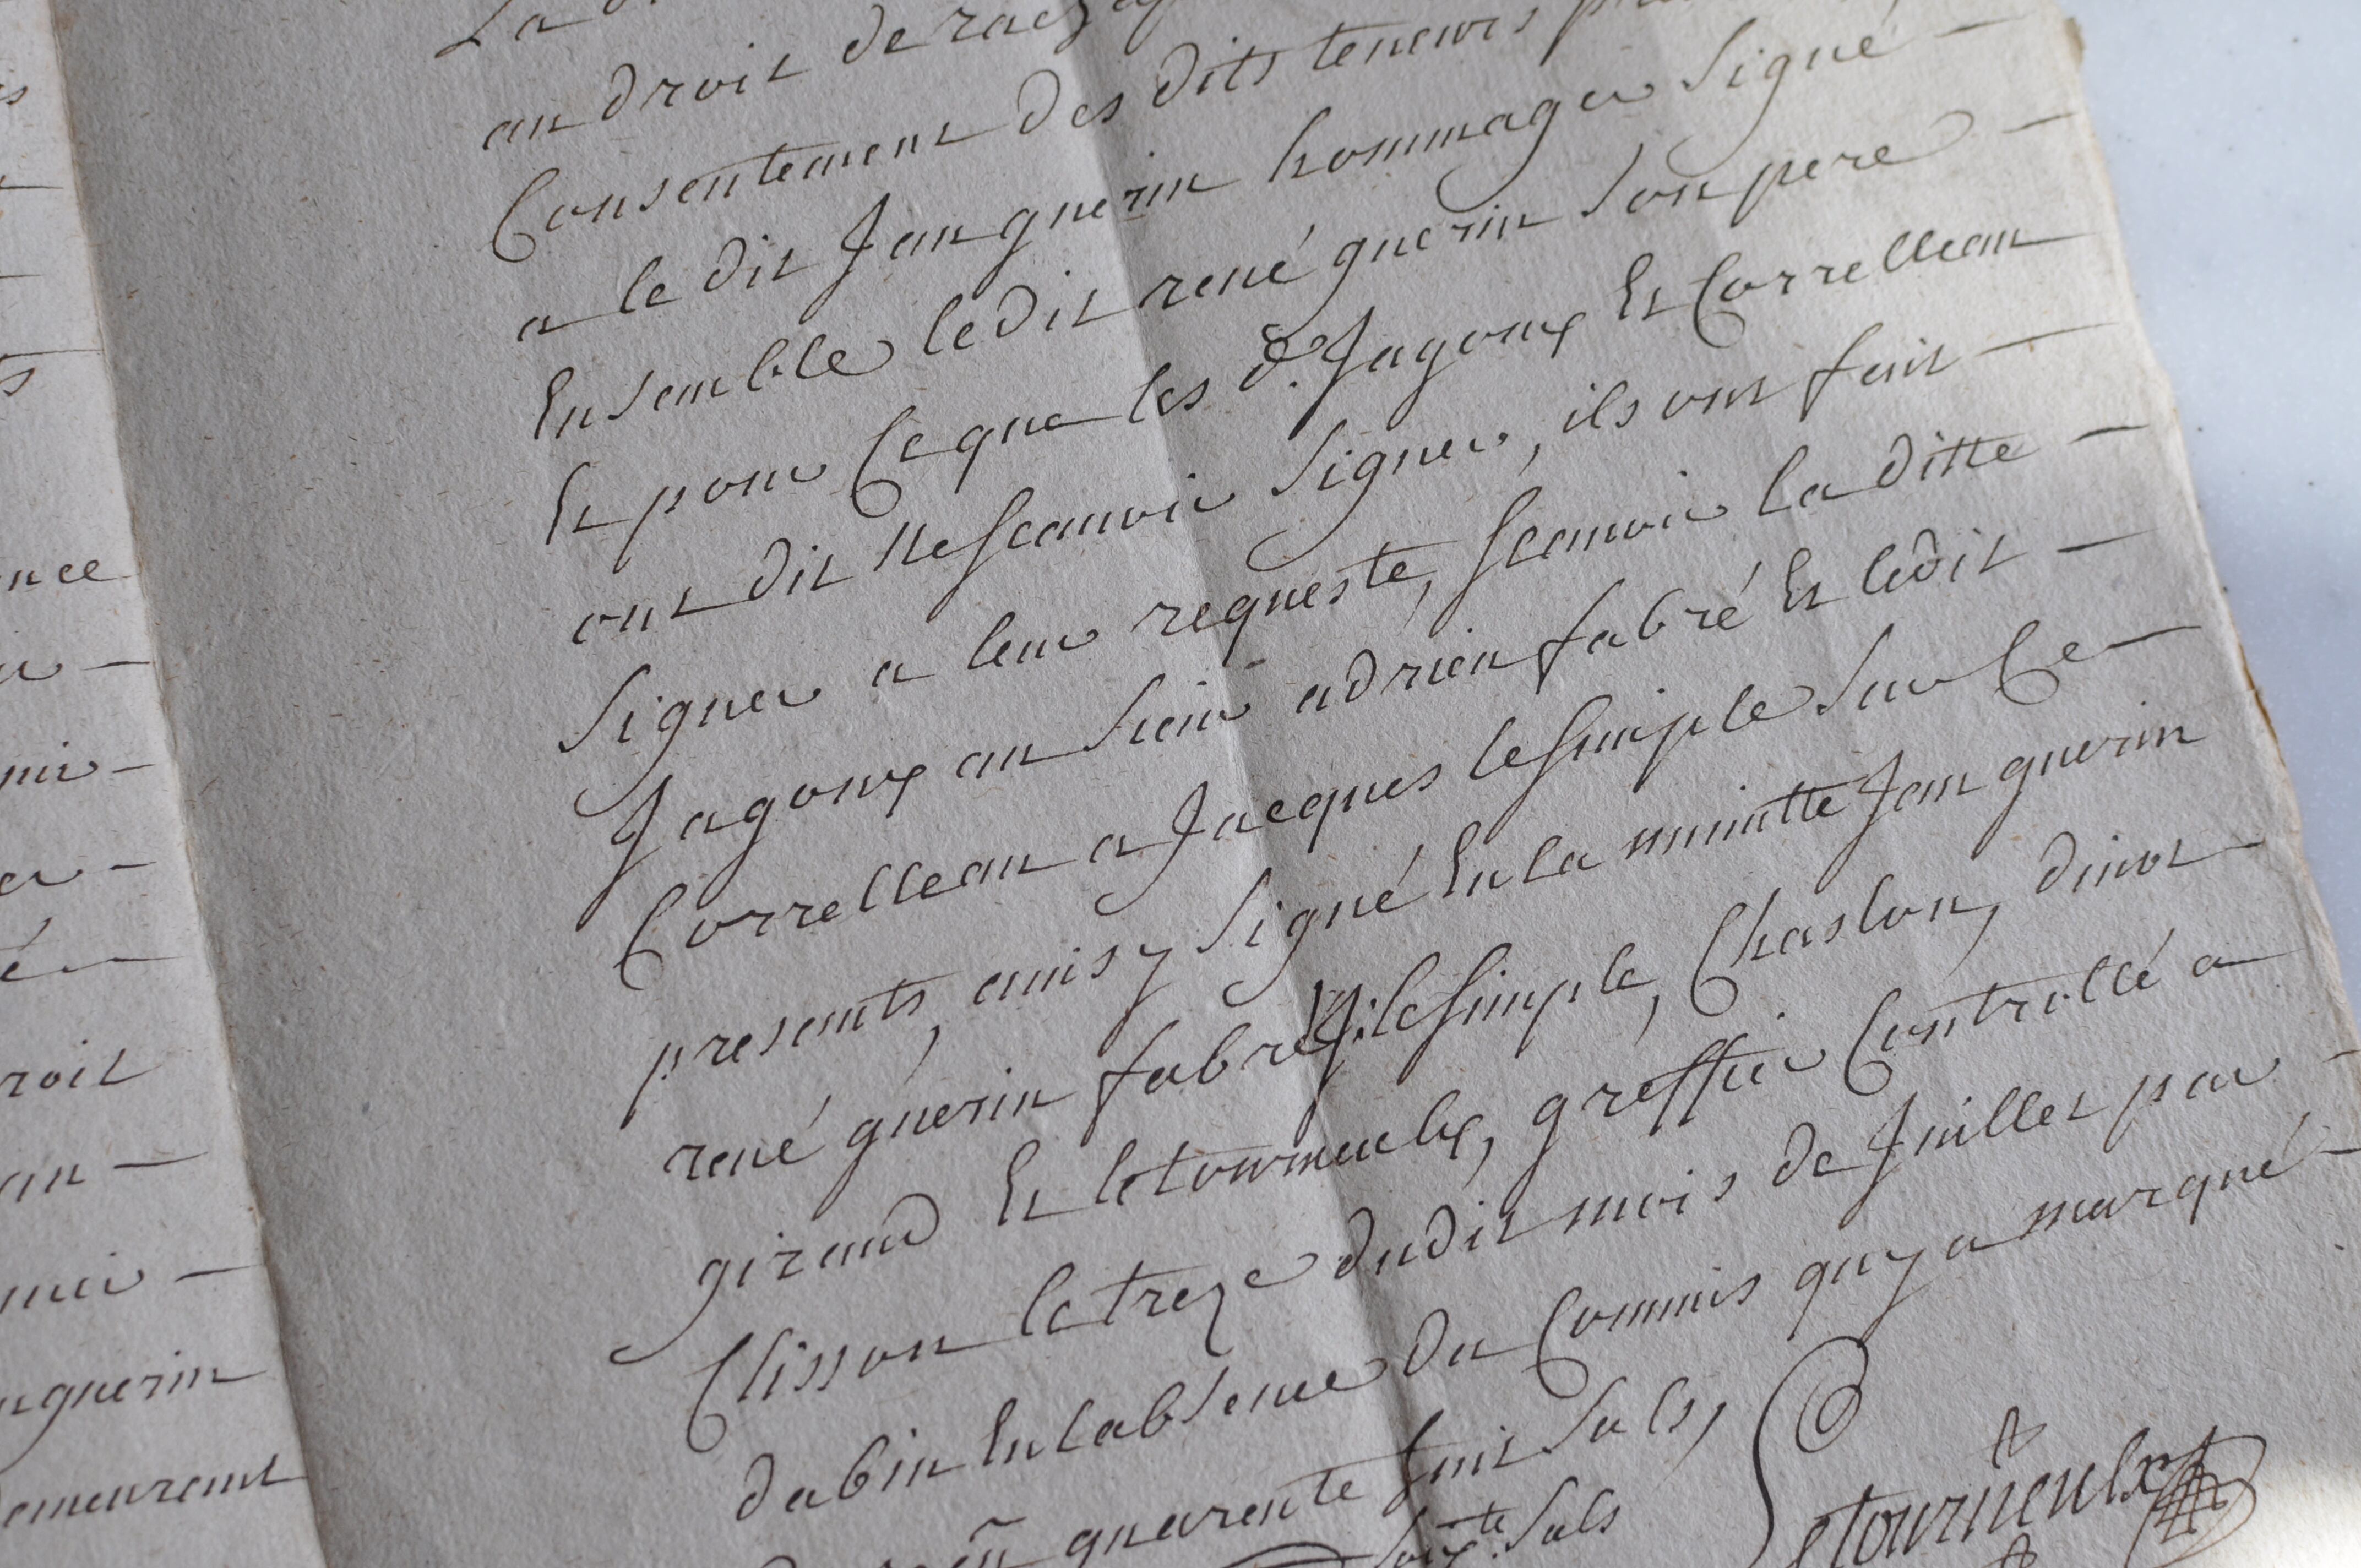 s
nce
roit
guerin
demeurant
La
au droit de rach
Consentement des dits teneurs
a le dit Jan guerin hommager Signé
Ensemble ledit rené guerin Son pere
Et pour Ce que les d. Jagoux Et Correlleau
ont dit ne scauoir Signer, ils ont fait
Signer a leur requeste, scauoir la ditte
Jagoux au Sieur adrien fabré Et ledit
Correlleau a Jacques lesimple Sur Ce
presents, ainsy Signé En la minutte Jan guerin
rené guerin fabré J: lesimple, Chaslon,
giraud Et letourneulx, greffier Controllé a
Clisson le treze dudit mois de Juillet par
dabin En labsence du Commis quy a marqué
quarente huit Sols,
Soix.te Sols
Letourneulx